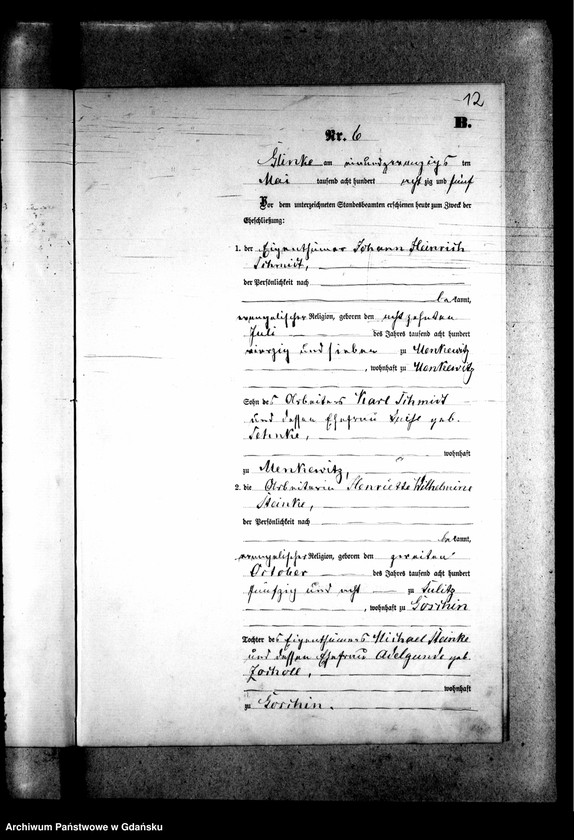 12
B.
Nr. 6
Glinke am einundzwanzigs ten
Mai tausend acht hundert acht zig und fünf
Vor dem unterzeichneten Standesbeamten erschienen heute zum Zweck der
Eheschließung:
1. der Eigenthümer Johann Heinrich
Schmidt,
der Persönlichkeit nach
be kannt,
evangelischer Religion, geboren den acht zehnten
Juli des Jahres tausend acht hundert
vierzig und sieben zu Menkewitz
, wohnhaft zu Menkewitz
Sohn des Arbeiters Karl Schmidt
und dessen Ehefrau geb.
wohnhaft
zu Menkewitz,
2. die Arbeiterin Henriette Wilhelmine
Steinke,
der Persönlichkeit nach
be kannt,
evangelischer Religion, geboren den zweiten
October des Jahres tausend acht hundert
fünfzig und acht zu
, wohnhaft zu Goschin
Tochter des Eigenthümers Michael Steinke
und dessen Ehefrau Adelgunde geb.
wohnhaft
zu Goschin.
Archiwum Państwowe w Gdańsku